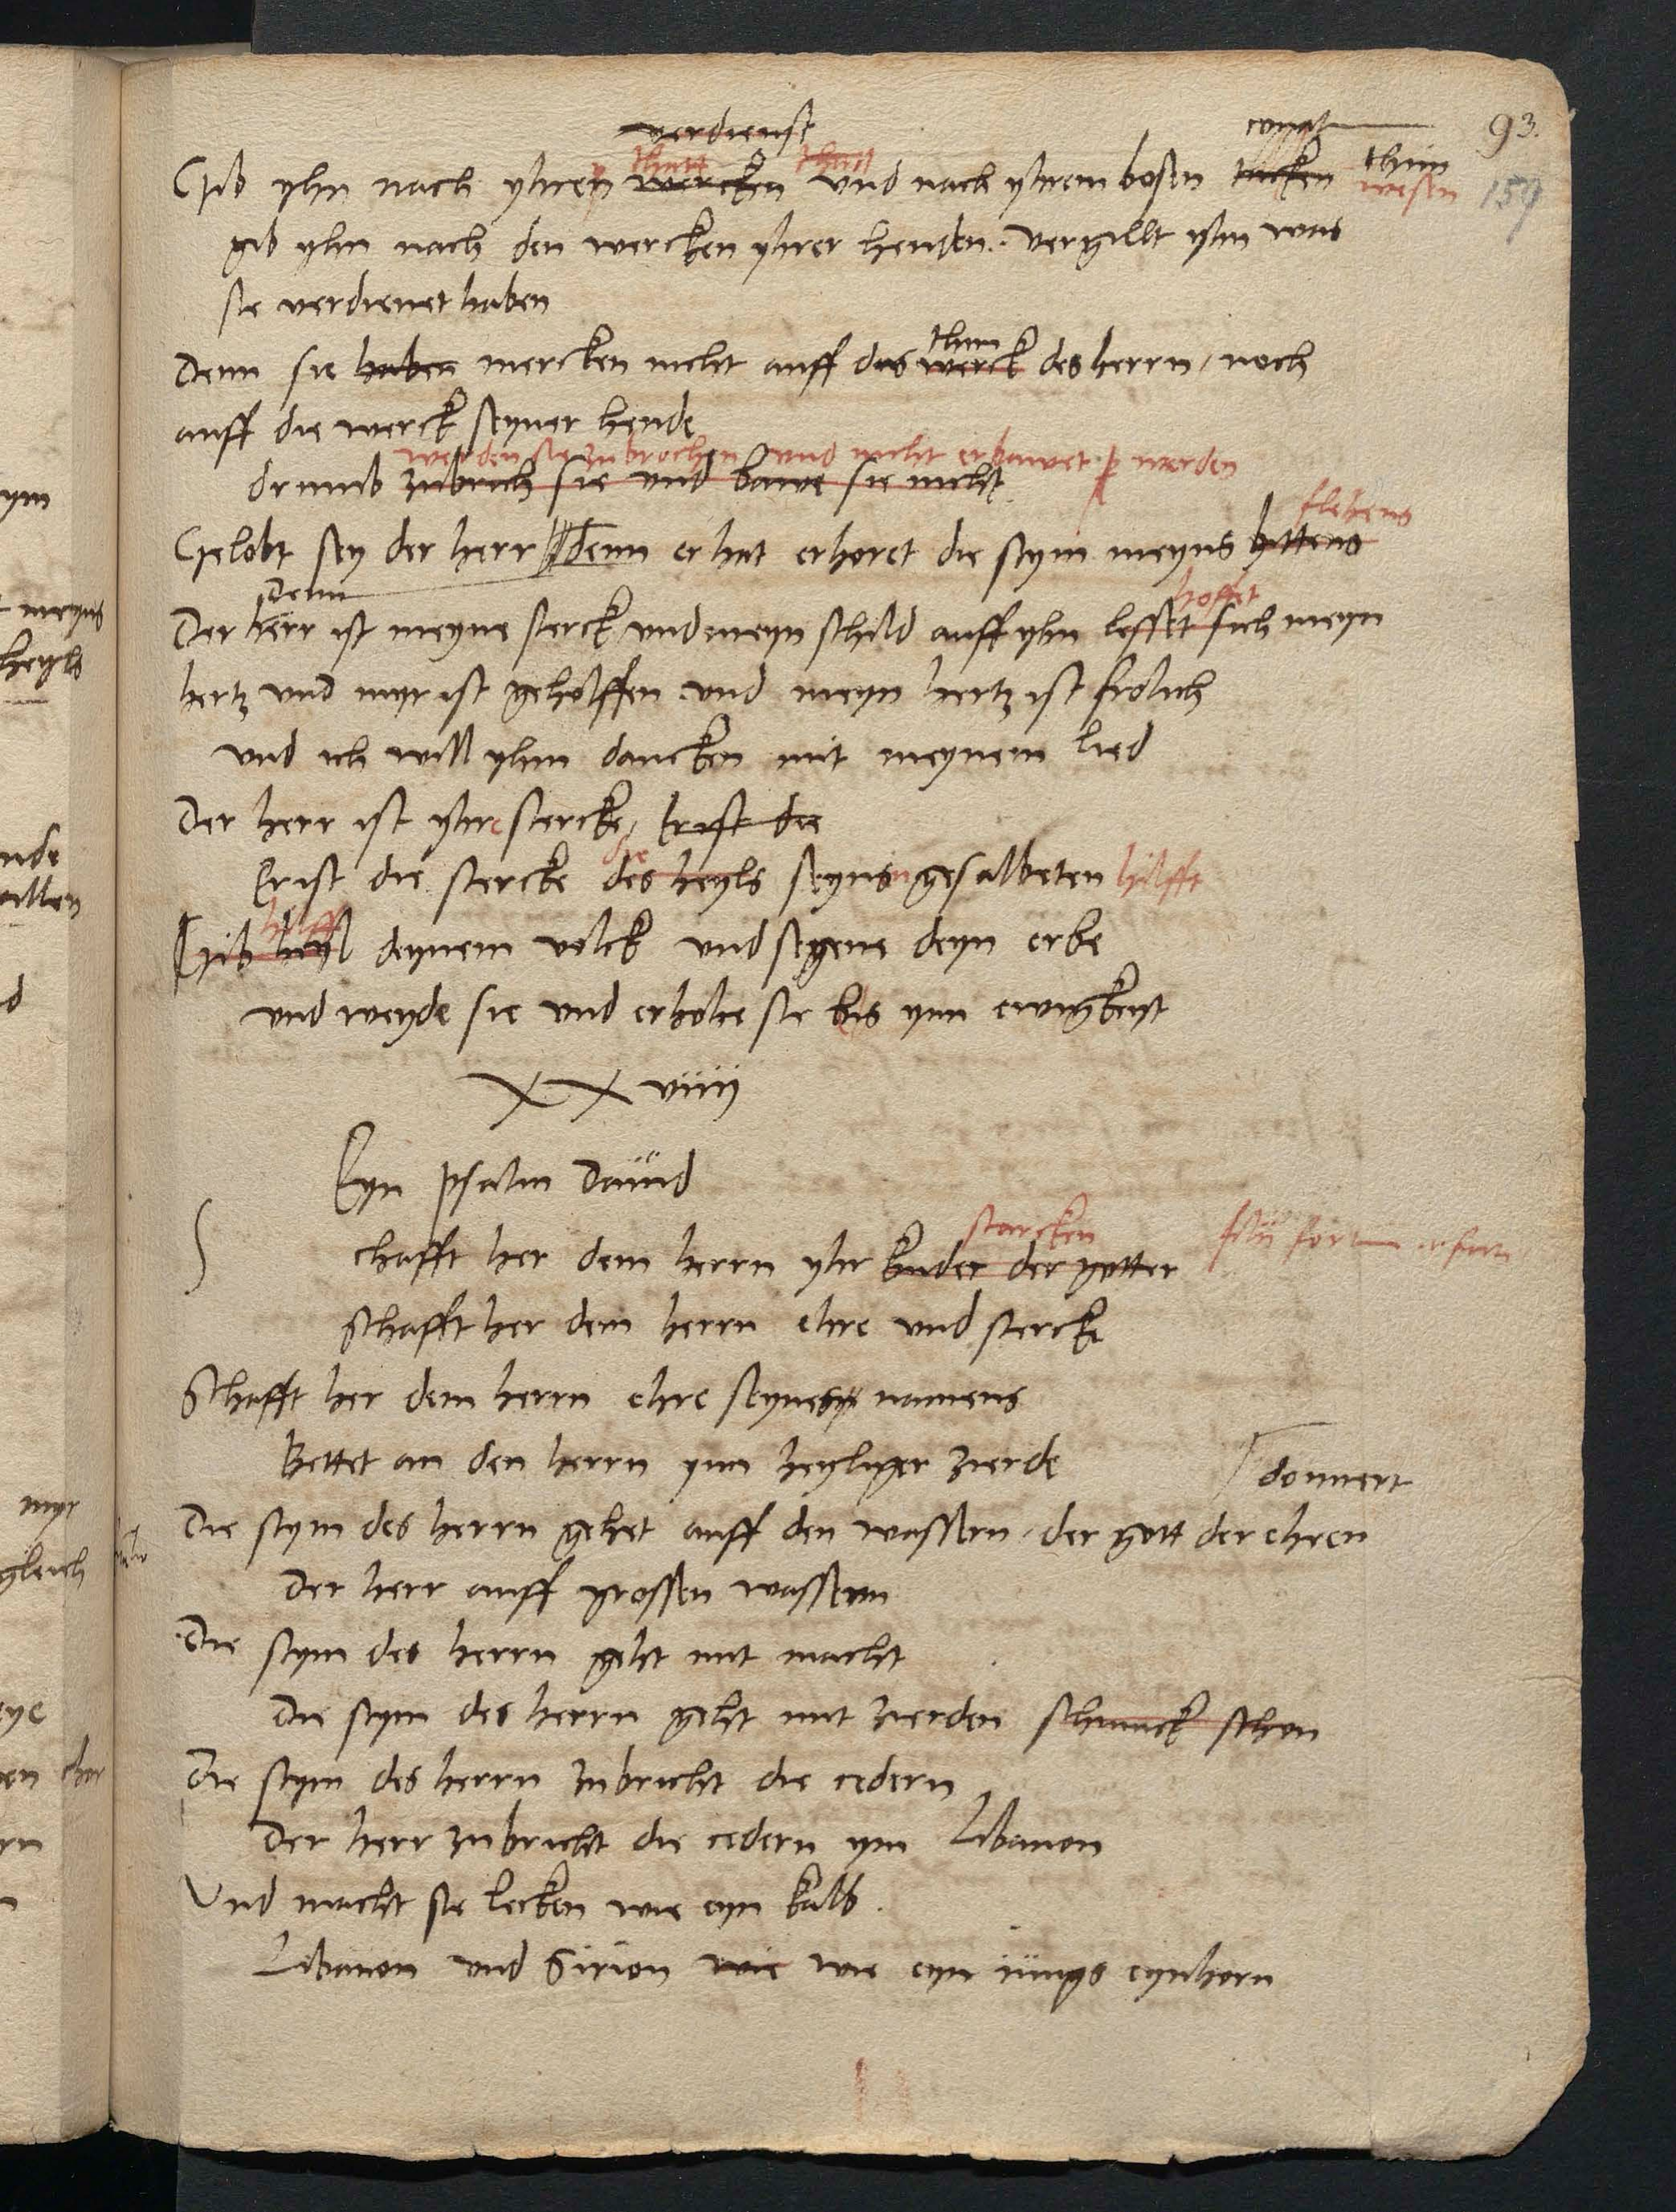 93.
verdienst
thatt that thun
Gib yhn nach yhren wercken vnd nach yhrem bosen tucken wesen
159
gib yhn nach den wercken yhrer henden. vergillt yhn was
sie verdienet haben
thun
Denn sie haben mercken nicht auff das werck des herrn, noch
auff die werck seyner hende
werden sie zubrochen vnd nicht erbawet werden
drumb zubrich sie vnd bawe sie nicht
flehens
Gelobt sey der herr denn er hat erhoret die stym meyns bittens
Denn hoffet
Der herr ist meyne sterck vnd meyn schild auff yhn lesset sich meyn
hertz vnd myr ist geholffen. vnd meyn hertz ist frolich
vnd ich will yhm dancken mit meynem lied
Der herr ist yhre stercke, Er ist die
die
Er ist die stercke des heyls seyns gesalbeten hilfft
hilff
Gib heyl deynem volck vnd segene deyn erbe
vnd weyde sie vnd erhohe sie bis ynn ewigkeyt
XXviiij
Eyn psalm Dauid
starcken
Schafft her dem herrn yhr kinder der gotter filij
Schafft her dem herrn ehre vnd stercke
Schafft her dem herrn ehre seynes namens
Bettet an den herrn ynn heyliger zierde
donnert
Die stym des herrn gehet auff den wassern. der gott der ehren
Der herr auff grossen wassern
Die stym des herrn geht mit macht
Die stym des herrn geht mit zierden schmuck schon
Die stym des herrn zubricht die cedern
Der herr zubricht die cedern ym Libanon
Vnd macht sie lecken wie eyn kalb.
Libanon vnd Sirion wie wie eyn iungs eynhorn